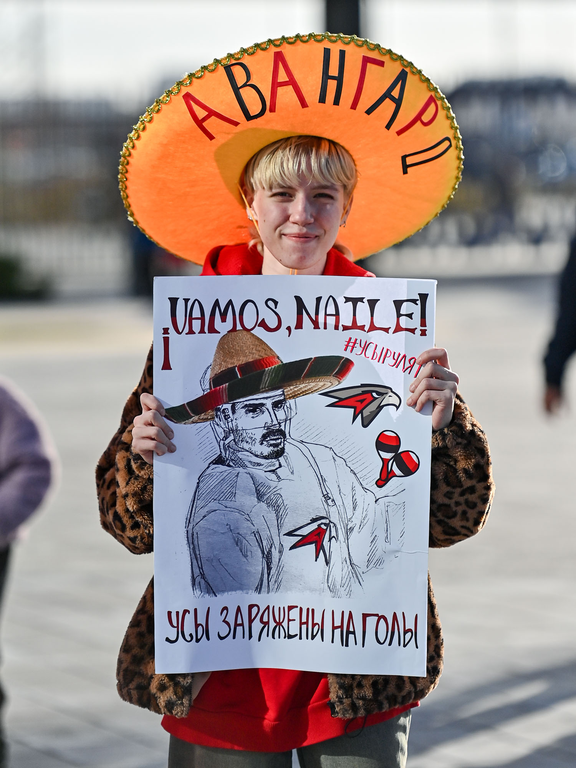 АВАНГАРД
¡VAMOS, NAILE!
#УСЫРУЛЯТ
УСЫ ЗАРЯЖЕНЫ НА ГОЛЫ